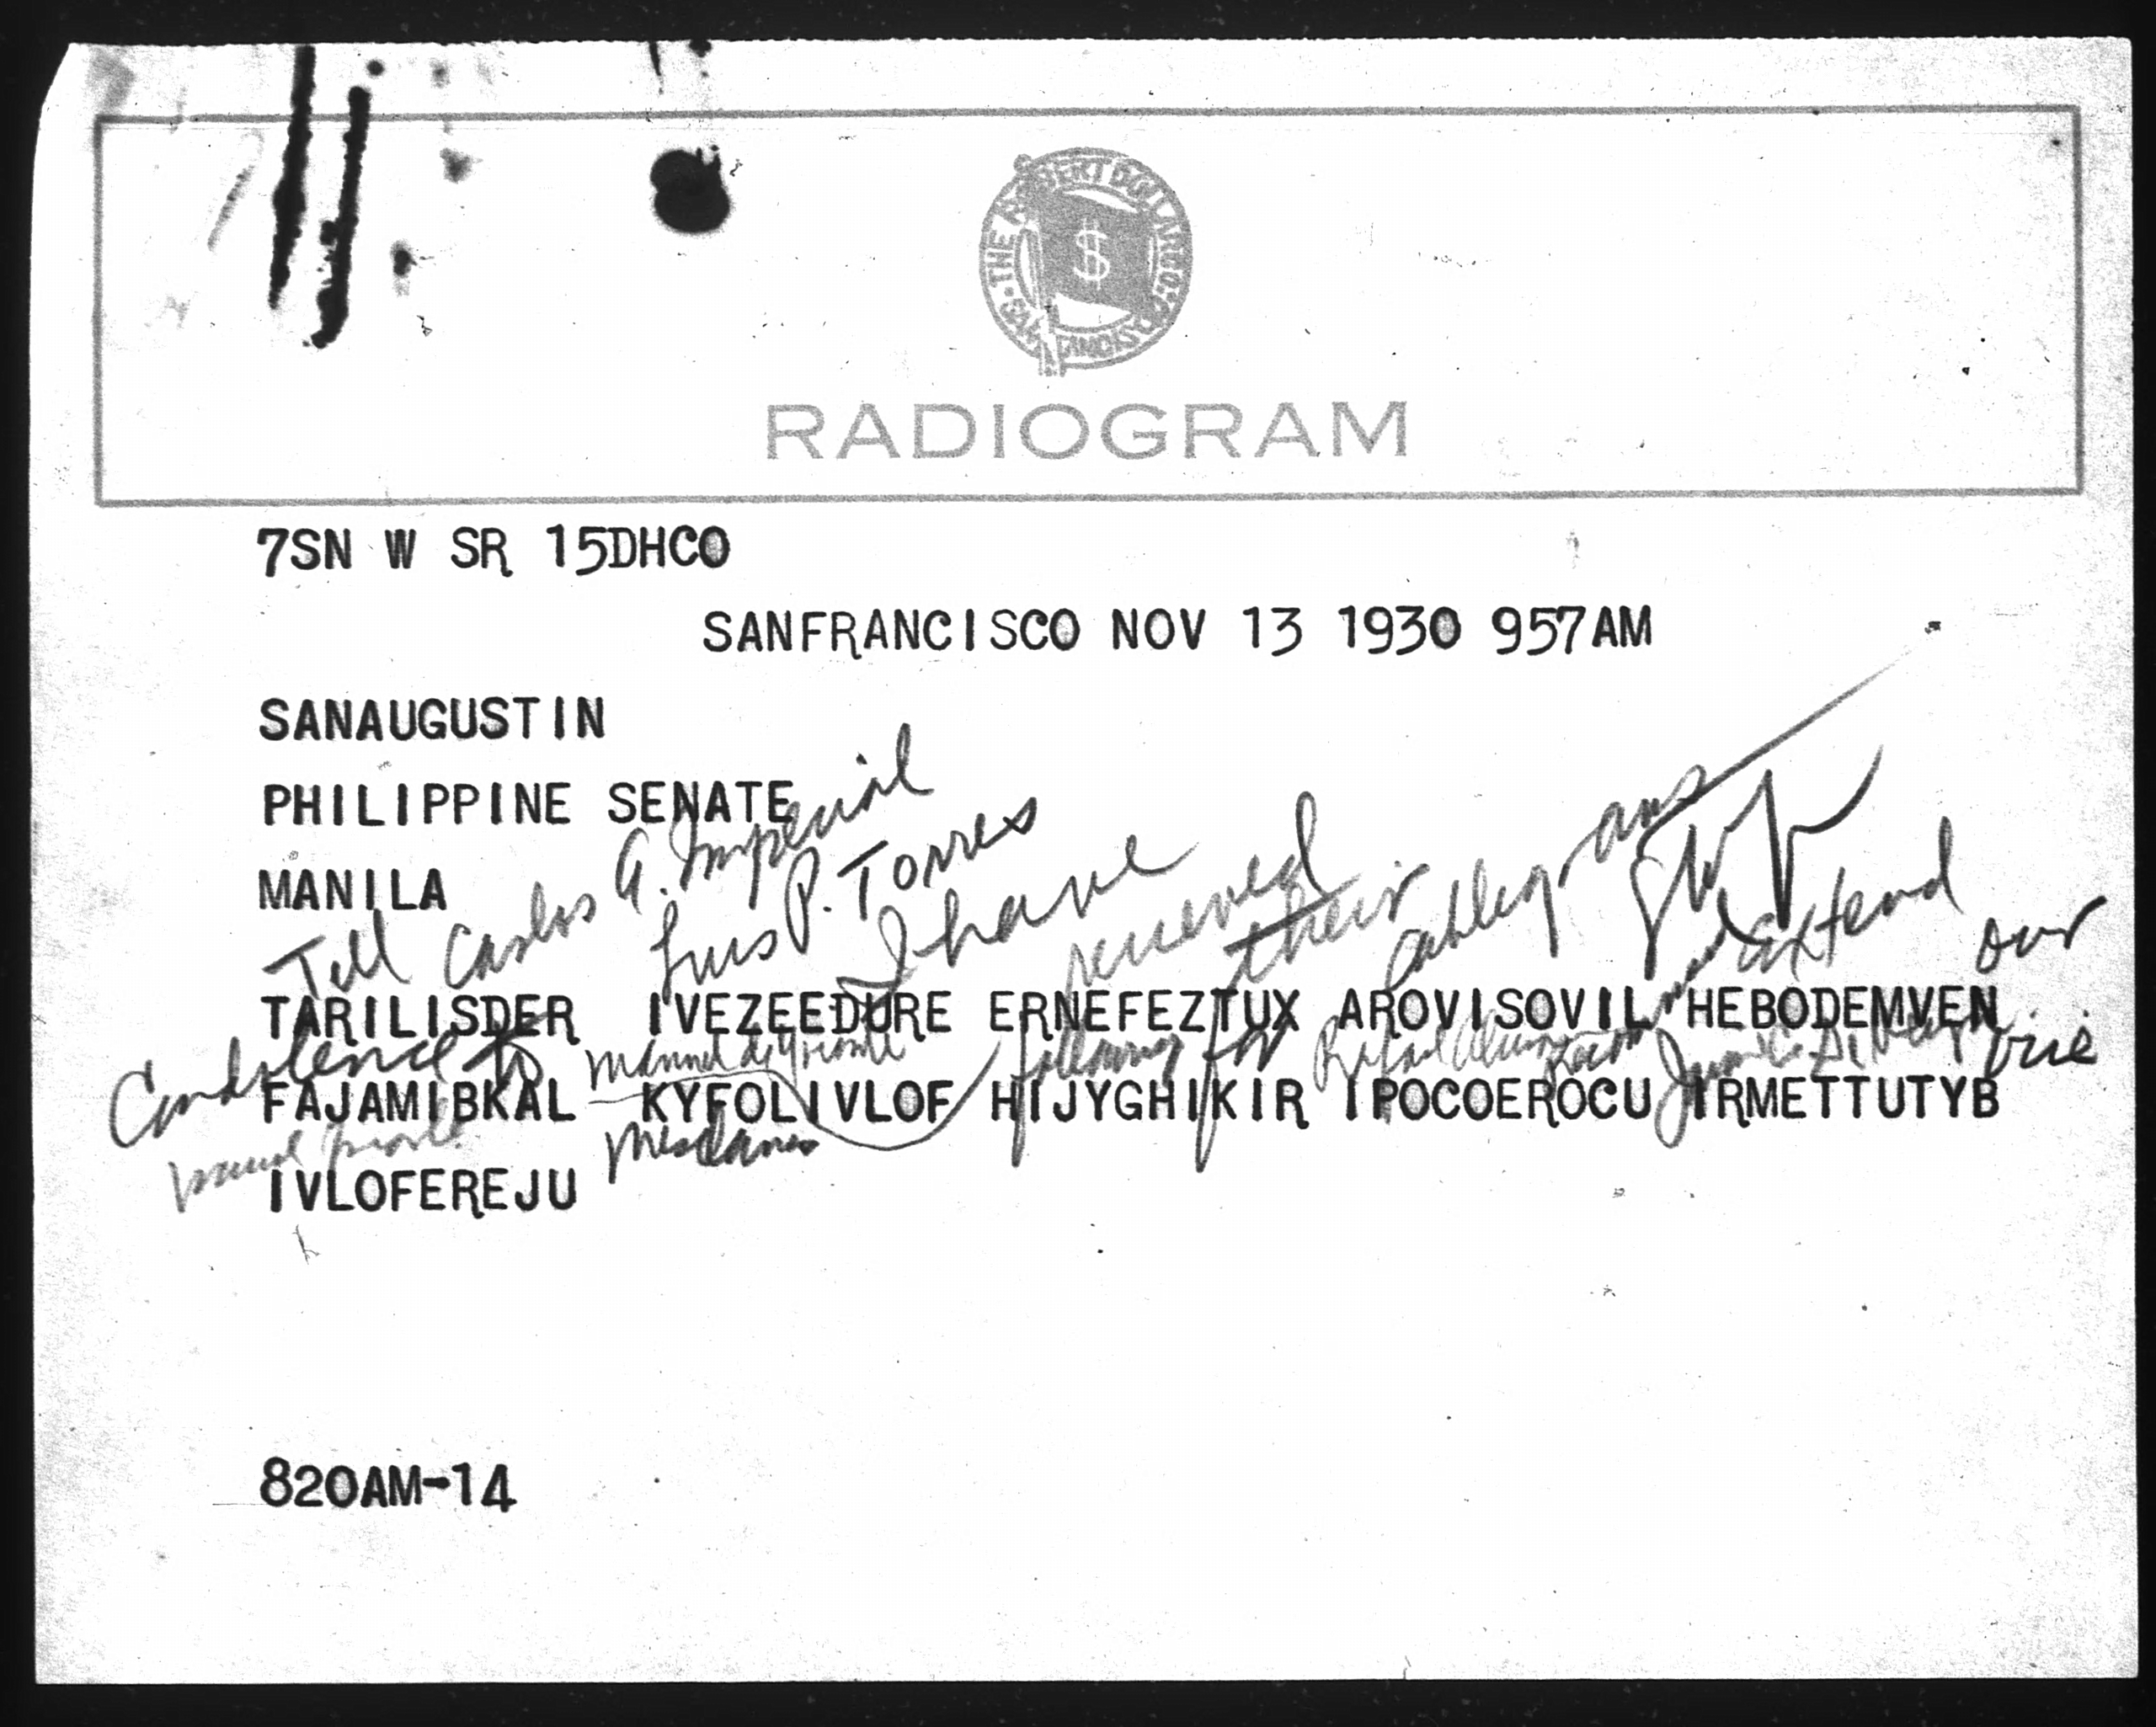 THE ROBERT DOLLAR CO. SAN FRANCISCO
$
RADIOGRAM
7SN W SR 15DHCO
SANFRANCISCO NOV 13 1930 957AM
SANAUGUSTIN
PHILIPPINE SENATE
MANILA
Tell Carlos A. Imperial Luis P. Torres I have received their cablegrams Extend our
TARILISDER IVEZEEDURE ERNEFEZTUX AROVISOVIL HEBODEMVEN
Condolence to following for Juan
FAJAMIBKAL KYFOLIVLOF HIJYGHIKIR IPOCOEROCU IRMETTUTYB
IVLOFEREJU
820AM-14